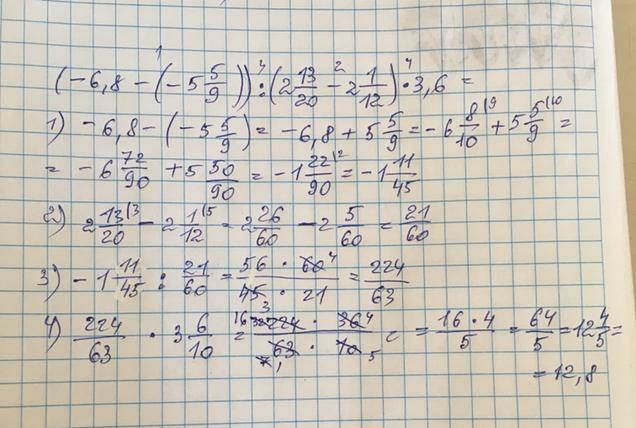 (-6,8 - (-5 5/9)) : (2 13/20 - 2 1/12) · 3,6 =
1) -6,8 - (-5 5/9) = -6,8 + 5 5/9 = -6 8/10 + 5 5/9 =
= -6 72/90 + 5 50/90 = -1 22/90 = -1 11/45
2) 2 13/20 - 2 1/12 = 2 26/60 - 2 5/60 = 21/60
3) -1 11/45 : 21/60 = 56 · 60/45 · 21 = 224/63
4) 224/63 · 3 6/10 = 224 · 36/63 · 10 = = 16 · 4/5 = 64/5 = 12 4/5 =
= 12,8